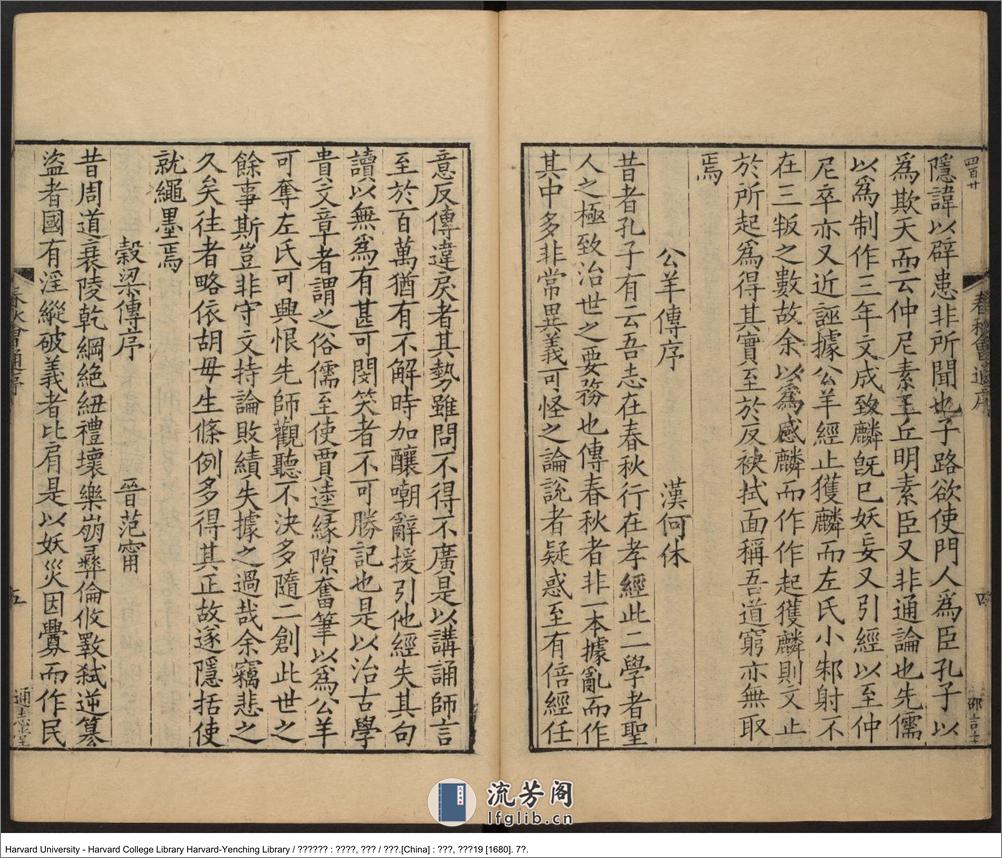 四百廿
隱諱以辟患非所聞也子路欲使門人爲臣孔子以
爲欺天而云仲尼素王丘明素臣又非通論也先儒
以爲制作三年文成致麟旣已妖妄又引經以至仲
尼卒亦又近誣據公羊經止獲麟而左氏小邾射不
在三叛之數故余以爲感麟而作作起獲麟則文止
於所起爲得其實至於反袂拭面稱吾道窮亦無取
焉
公羊傳序 漢何休
昔者孔子有云吾志在春秋行在孝經此二學者聖
人之極致治世之要務也傳春秋者非一本據亂而作
其中多非常異義可怪之論說者疑惑至有倍經任
意反傳違戾者其勢雖問不得不廣是以講誦師言
至於百萬猶有不解時加釀嘲辭援引他經失其句
讀以無爲有甚可閔笑者不可勝記也是以治古學
貴文章者謂之俗儒至使賈逵緣隙奮筆以爲公羊
可奪左氏可興恨先師觀聽不決多隨二創此世之
餘事斯豈非守文持論敗績失據之過哉余竊悲之
久矣往者略依胡毋生條例多得其正故遂隱括使
就繩墨焉
穀梁傳序 晉范甯
昔周道衰陵乾綱絕紐禮壞樂崩彝倫攸斁弒逆篡
盜者國有淫縱破義者比肩是以妖災因釁而作民
春秋會通序
四
春秋會通序
五
通志堂
流芳阁
lfglib.cn
Harvard University - Harvard College Library Harvard-Yenching Library / ?????? : ????, ??? / ???.[China] : ???, ???19 [1680]. 7?.